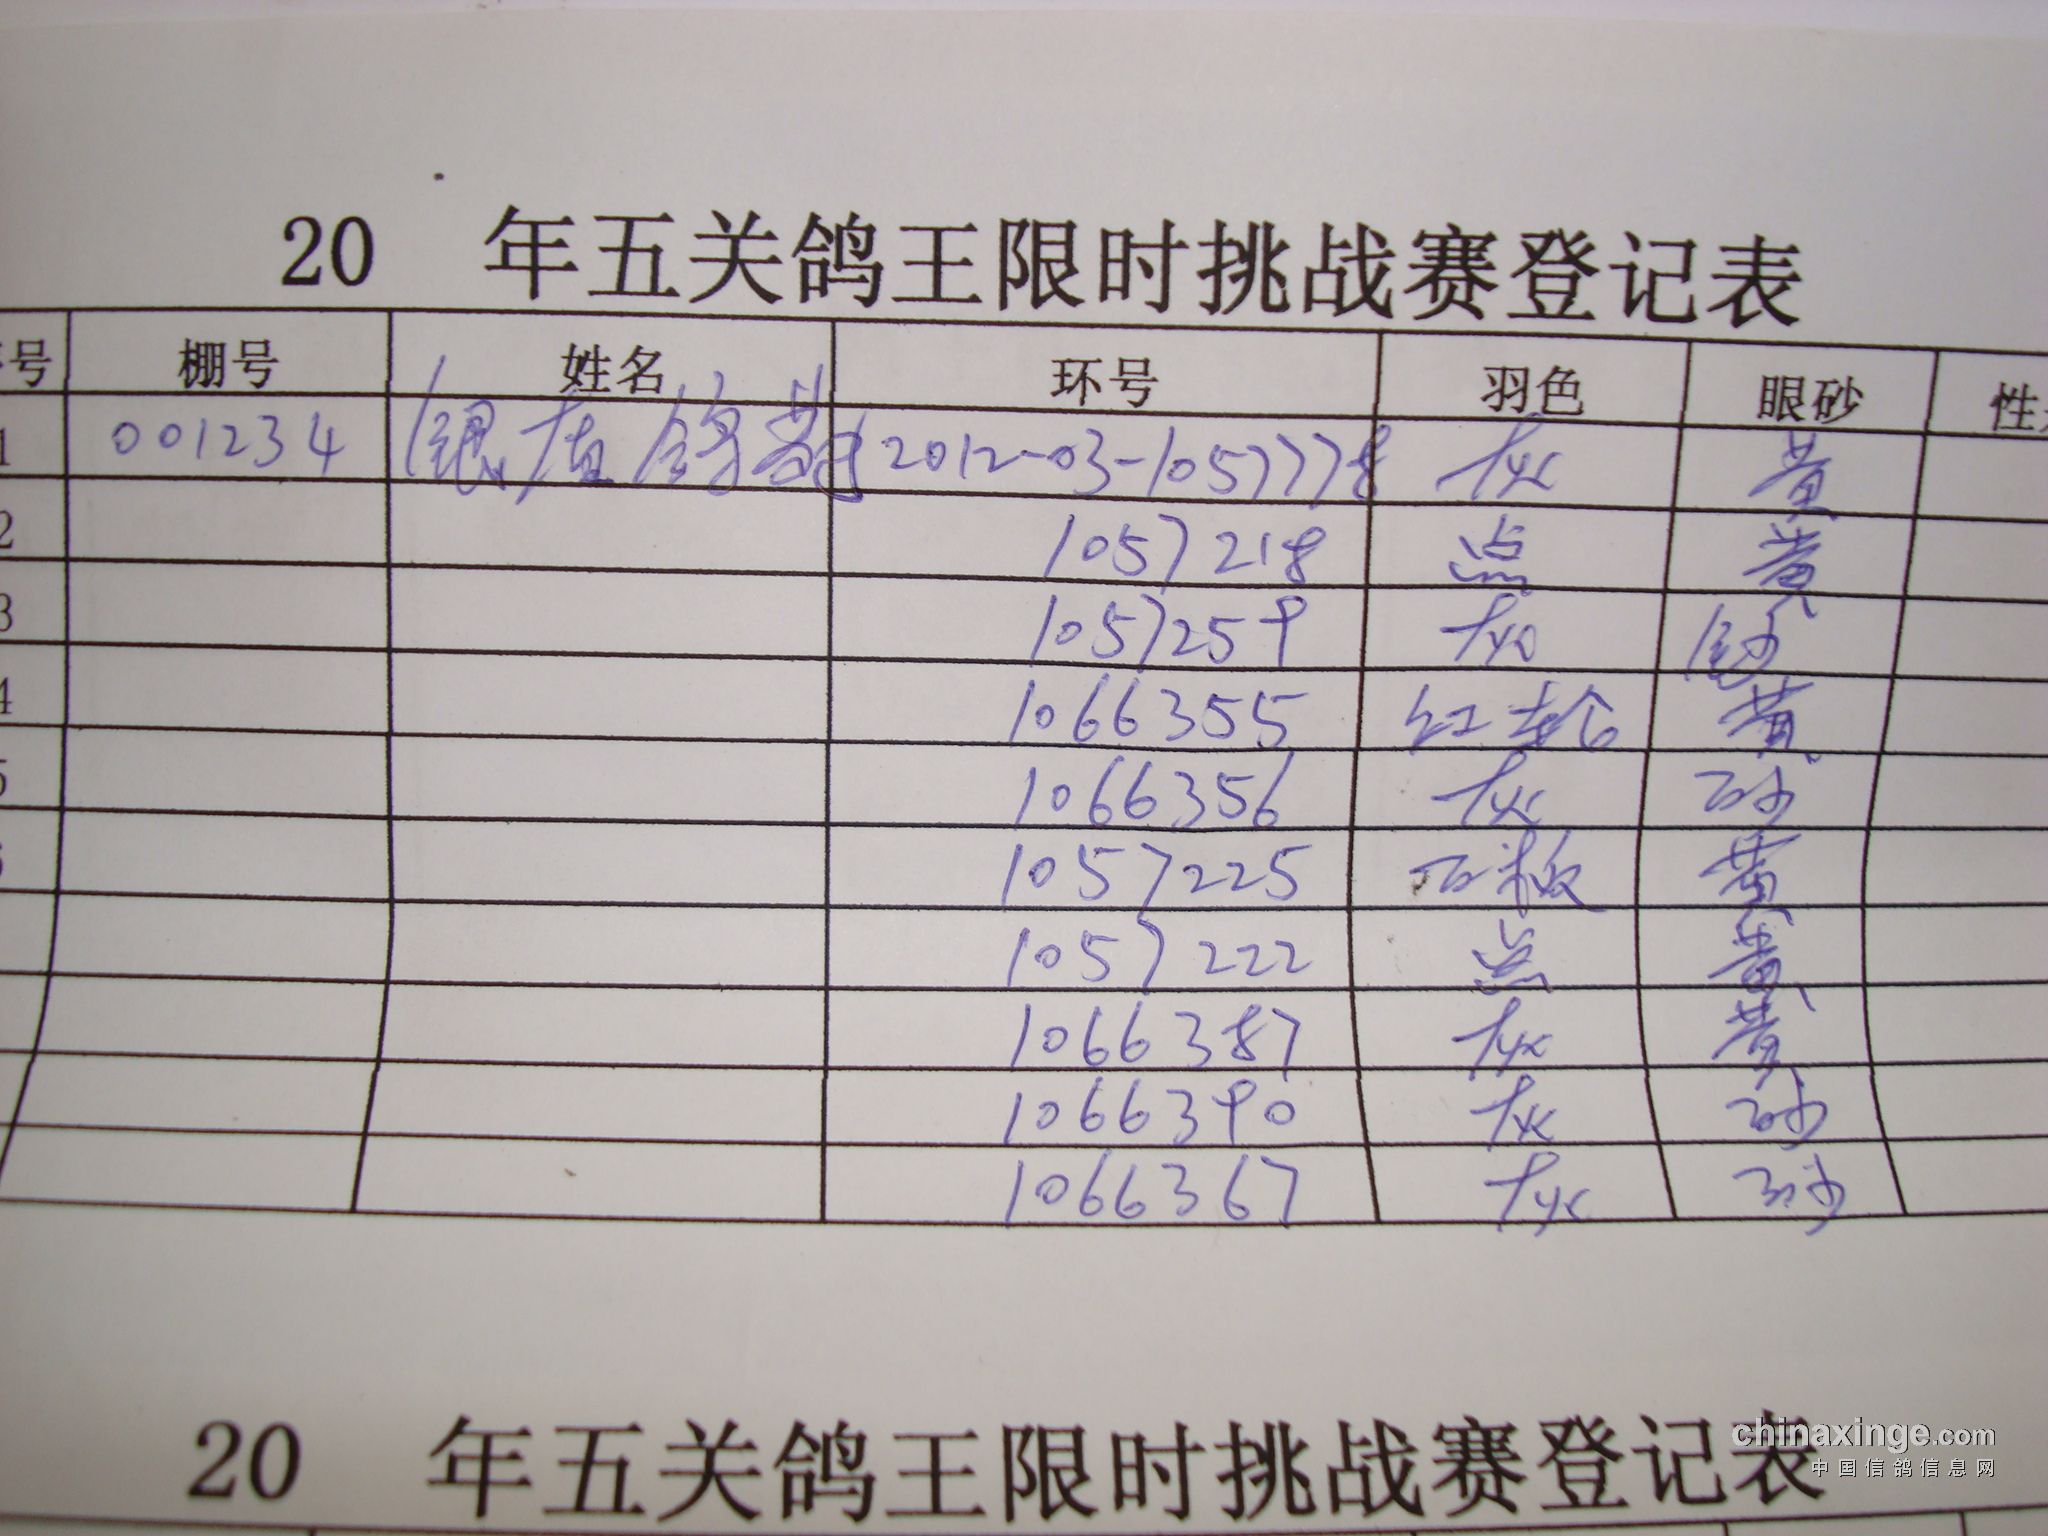 20 年五关鸽王限时挑战赛登记表
号 棚号 姓名 环号 羽色 眼砂 性
1 001234 银 鸽 2012-03-1057778 灰 黄
2 1057218 点 黄
3 1057259 灰 砂
4 1066355 红轮 黄
5 1066356 灰 砂
6 1057225 石板 黄
1057222 点 黄
1066387 灰 黄
1066390 灰 砂
1066367 灰 砂
20 年五关鸽王限时挑战赛登记表
chinaxinge.com
中国信鸽信息网